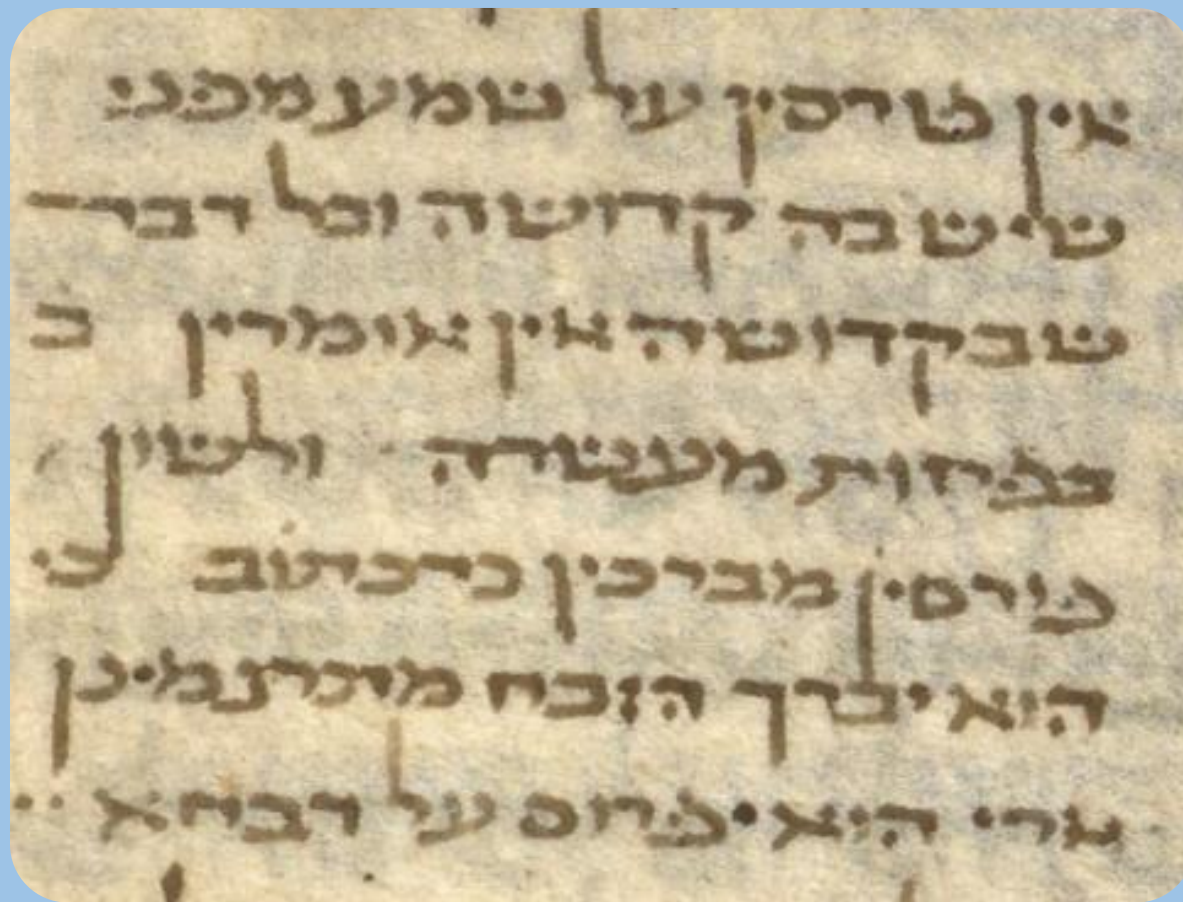 אין פורסין על שמע מפני
שיש בה קדושה וכל דבר
שבקדושה אין אומרין ב
בפחות מעשרה ולשון
פורסין מברכין כדכתוב כי
הוא יברך הזבח מתרגמינן
ארי הוא יפרוס על דבחא